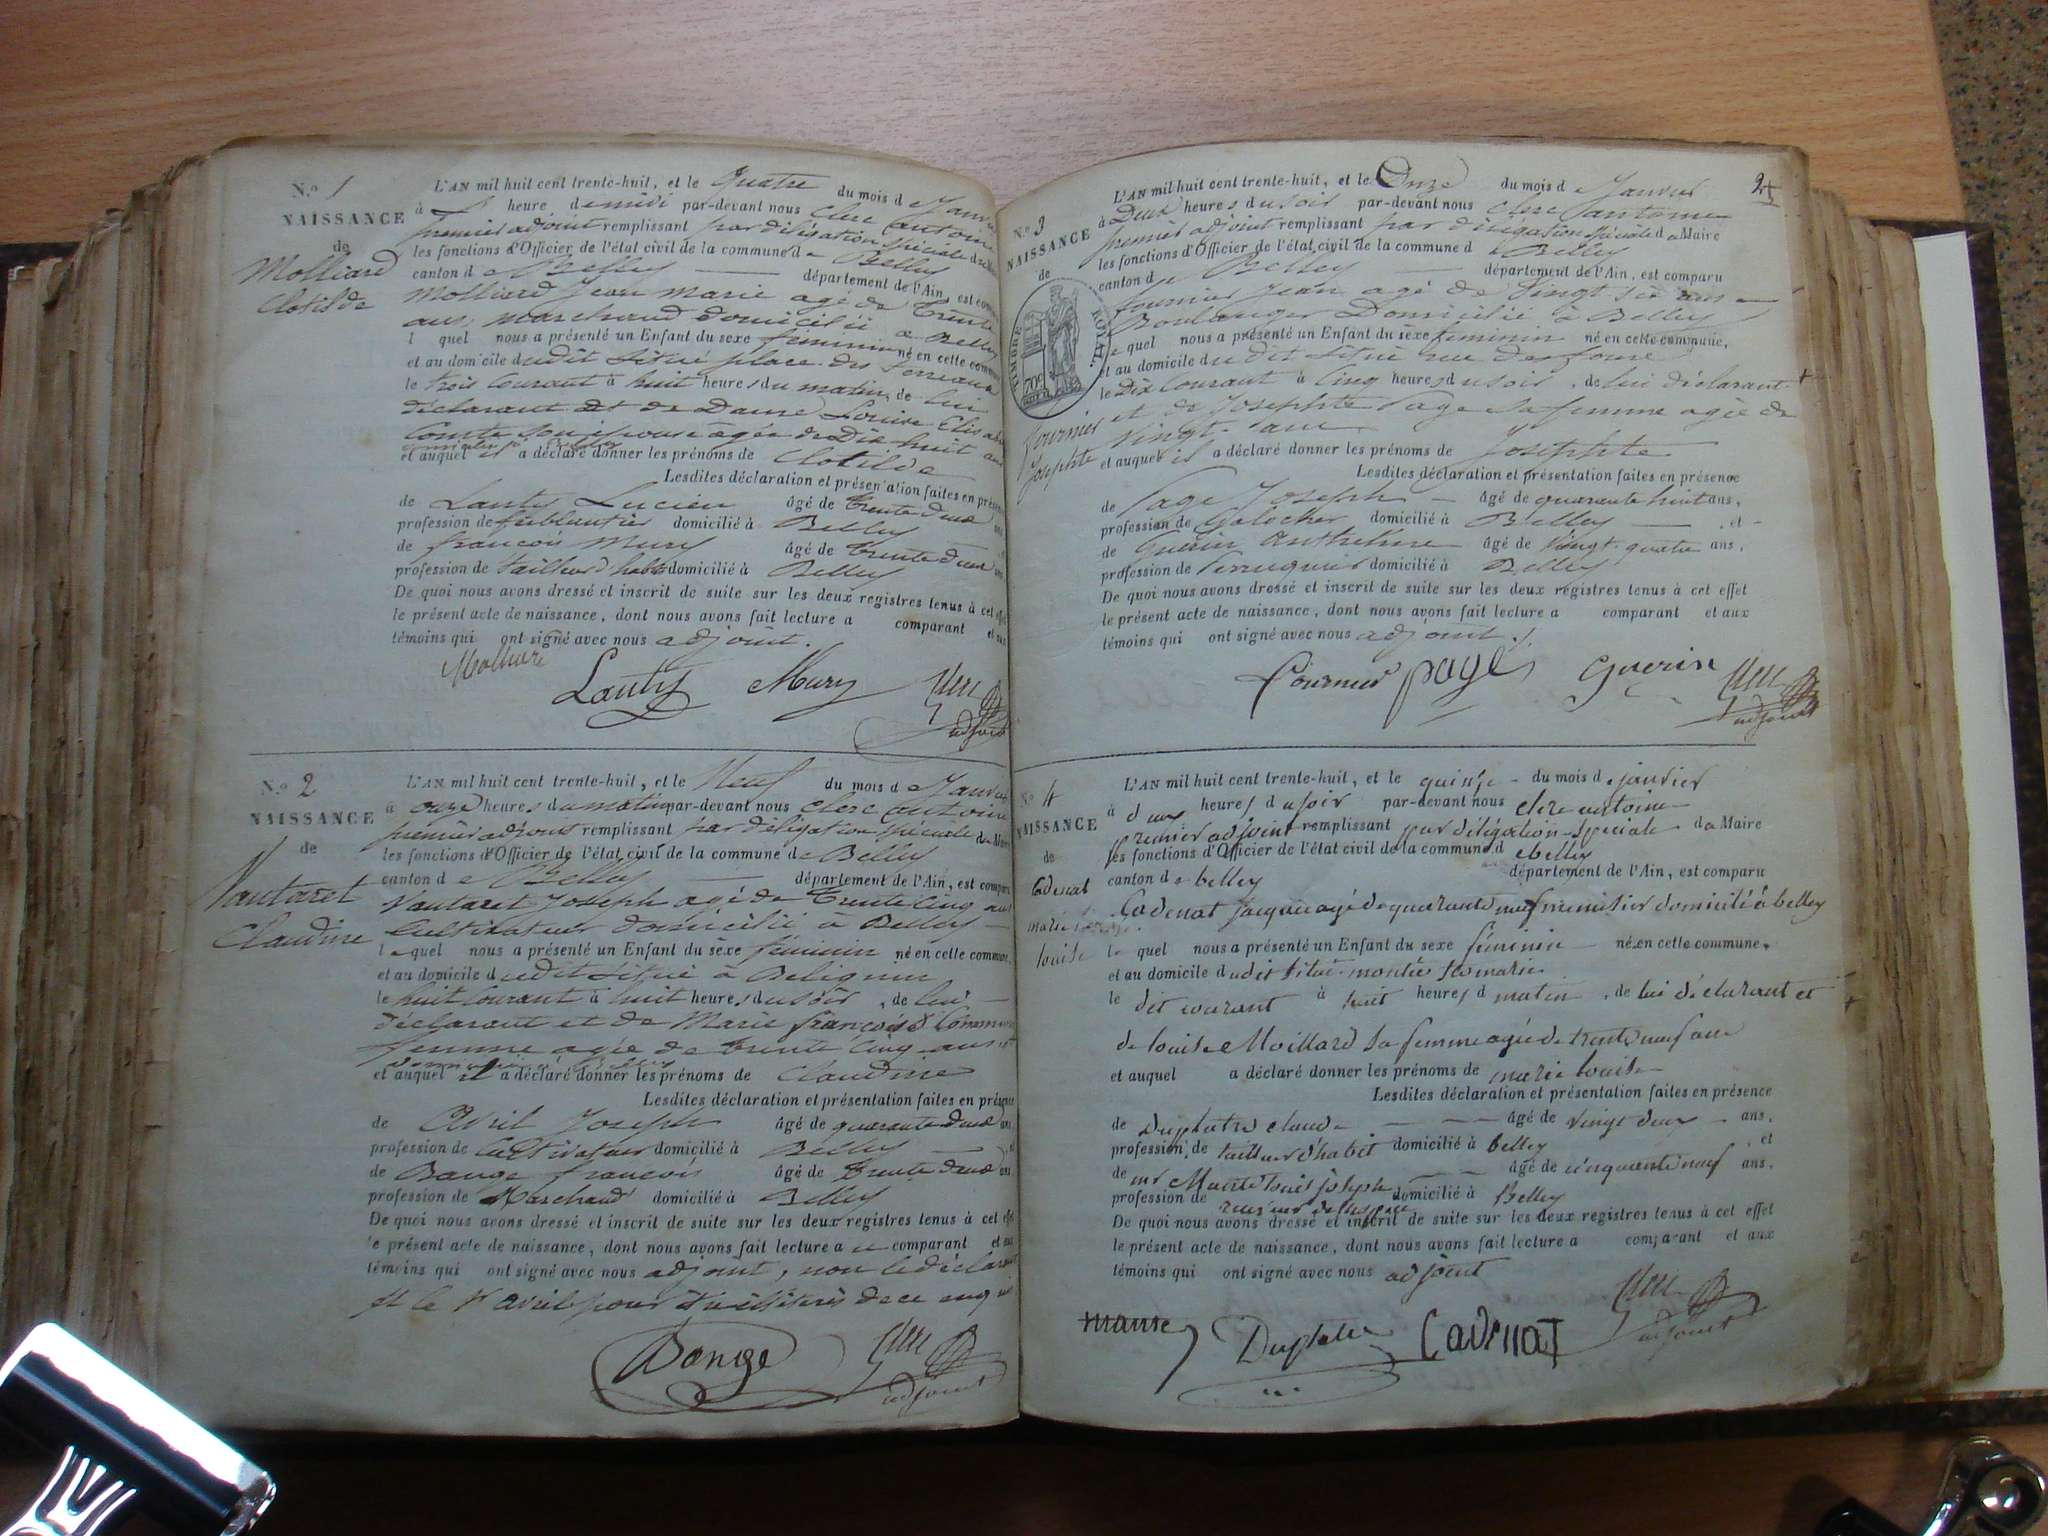 N.º 1
NAISSANCE
de
Molliard
Clotilde
L'AN mil huit cent trente-huit, et le Quatre du mois de Janvier
à heure de midi par-devant nous Clerc Antoine
premier adjoint remplissant par déligation spéciale du
les fonctions d'Officier de l'état civil de la commune de Belley
canton de Belley département de l'Ain, est comparu
Molliard Jean Marie agé de Trente
ans, Marchand domicilié à Belley
l quel nous a présenté un Enfant du sexe feminin né en cette commune
et au domicile dudit situé place des Terreaux
le trois Courant à huit heures du matin, de lui
déclarant et de Dame Louise Elisa
Comte son épouse agée de Dix huit ans
et auquel il a déclaré donner les prénoms de Clotilde
Lesdites déclaration et présentation faites en présence
de Lanty Lucien âgé de trente deux
profession de ferblantier domicilié à Belley
de françois Mury âgé de trente deux ans
profession de tailleur d'habits domicilié à Belley
De quoi nous avons dressé et inscrit de suite sur les deux registres tenus à cet effet
le présent acte de naissance, dont nous avons fait lecture a comparant et aux
témoins qui ont signé avec nous adjoint.
Lanty Mury Clerc
adjoint
N.º 2
NAISSANCE
de
Vautaret
Claudine
L'AN mil huit cent trente-huit, et le Neuf du mois de Janvier
à onze heures du matin par-devant nous Clerc Antoine
premier adjoint remplissant par déligation spéciale du Maire
les fonctions d'Officier de l'état civil de la commune de Belley
canton de Belley département de l'Ain, est comparu
Vautaret Joseph agé de Trente Cinq ans
Cultivateur domicilié à Belley
le quel nous a présenté un Enfant du sexe féminin né en cette commune,
et au domicile dudit situé à Belignin
le huit Courant à huit heures du soir, de lui
déclarant et de Marie françoise
femme agée de trente Cinq ans
et auquel il a déclaré donner les prénoms de Claudine
Lesdites déclaration et présentation faites en présence
de Avril Joseph âgé de quarante deux ans
profession de Cultivateur domicilié à Belley
de Bange françois âgé de trente deux ans
profession de Marchand domicilié à Belley
De quoi nous avons dressé et inscrit de suite sur les deux registres tenus à cet effet
le présent acte de naissance, dont nous avons fait lecture a comparant et aux
témoins qui ont signé avec nous adjoint, non le déclarant
et le Sr avril pour de ce enquis
Bange Clerc
adjoint
2
N.º 3
NAISSANCE
de
TIMBRE ROYAL
70c
fournier
Josephte
L'AN mil huit cent trente-huit, et le Onze du mois de Janvier
à Deux heures du soir par-devant nous Clerc antoine
premier adjoint remplissant par déligation spéciale du Maire
les fonctions d'Officier de l'état civil de la commune d Belley
canton de Belley département de l'Ain, est comparu
fournier Jean agé de Vingt six ans
Boulanger Domicilié à Belley
le quel nous a présenté un Enfant du sexe feminin né en cette commune,
et au domicile dudit situé rue des fours
le Dix Courant à Cinq heures du soir, de lui déclarant
et de Josephte Page sa femme agée de
Vingt ans
et auquel il a déclaré donner les prénoms de Josephte
Lesdites déclaration et présentation faites en présence
de Page Joseph âgé de quarante huit ans,
profession de Galocher domicilié à Belley et
de Guerin Anthelme âgé de Vingt quatre ans,
profession de Perruquier domicilié à Belley
De quoi nous avons dressé et inscrit de suite sur les deux registres tenus à cet effet
le présent acte de naissance, dont nous avons fait lecture a comparant et aux
témoins qui ont signé avec nous adjoint.
Fournier page Guerin Clerc
adjoint
N.º 4
NAISSANCE
de
Cadenat
marie
louise
L'AN mil huit cent trente-huit, et le quinze du mois de janvier
à deux heures du soir par-devant nous clerc antoine
premier adjoint remplissant par déligation spéciale du Maire
les fonctions d'Officier de l'état civil de la commune d belley
canton de belley département de l'Ain, est comparu
Cadenat jacques agé de quarante neuf menuisier domicilié à belley
le quel nous a présenté un Enfant du sexe féminin né en cette commune,
et au domicile dudit situé montée ste marie
le dit courant à huit heures d matin, de lui déclarant et
de louise Moillard sa femme agée de trente neuf ans
et auquel a déclaré donner les prénoms de marie louise
Lesdites déclaration et présentation faites en présence
de Duplatre claude âgé de vingt deux ans,
profession de tailleur d'habit domicilié à belley et
de mr louis joseph âgé de cinquante neuf ans,
profession de domicilié à Belley
De quoi nous avons dressé et inscrit de suite sur les deux registres tenus à cet effet
le présent acte de naissance, dont nous avons fait lecture a comparant et aux
témoins qui ont signé avec nous adjoint
Cadenat Clerc
adjoint